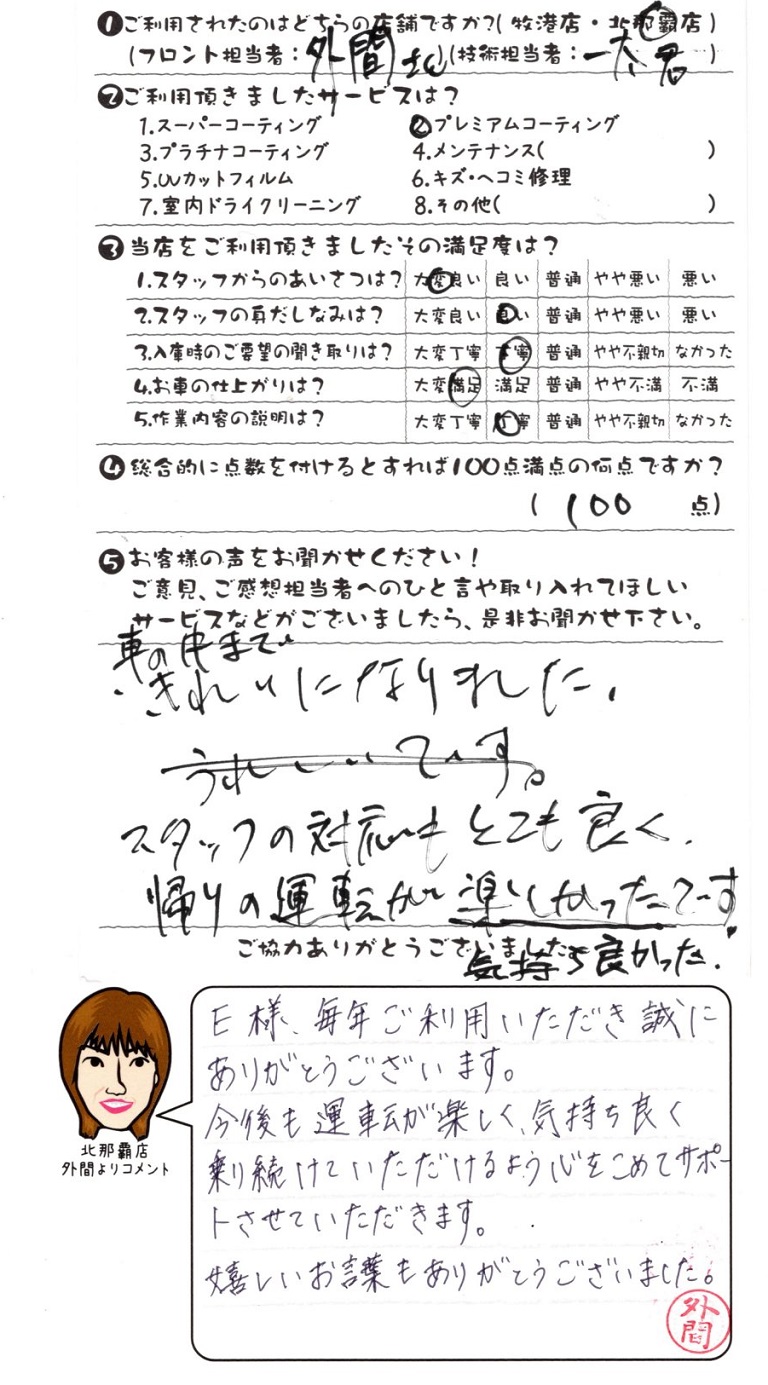 ❶ご利用されたのはどちらの店舗ですか?(牧港店・北那覇店)
(フロント担当者:外間さん)(技術担当者:一太君)
❷ご利用頂きましたサービスは?
1.スーパーコーティング ❷プレミアムコーティング
3.プラチナコーティング 4.メンテナンス( )
5.UVカットフィルム 6.キズ・ヘコミ修理
7.室内ドライクリーニング 8.その他( )
❸当店をご利用頂きましたその満足度は?
1.スタッフからのあいさつは? 大変良い 良い 普通 やや悪い 悪い
2.スタッフの身だしなみは? 大変良い 良い 普通 やや悪い 悪い
3.入庫時のご要望の聞き取りは? 大変丁寧 丁寧 普通 やや不親切 なかった
4.お車の仕上がりは? 大変満足 満足 普通 やや不満 不満
5.作業内容の説明は? 大変丁寧 丁寧 普通 やや不親切 なかった
❹総合的に点数を付けるとすれば100点満点の何点ですか?
(100 点)
❺お客様の声をお聞かせください!
ご意見、ご感想担当者へのひと言や取り入れてほしい
サービスなどがございましたら、是非お聞かせ下さい。
車の中まで
きれいになりました。
うれしいです。
スタッフの対応もとても良く、
帰りの運転が楽しかったです
ご協力ありがとうございました
気持ち良かった。
E様、毎年ご利用いただき誠に
ありがとうございます。
今後も運転が楽しく、気持ち良く
乗り続けていただけるよう心をこめてサポー
トさせていただきます。
嬉しいお言葉もありがとうございました。
外間
北那覇店
外間よりコメント